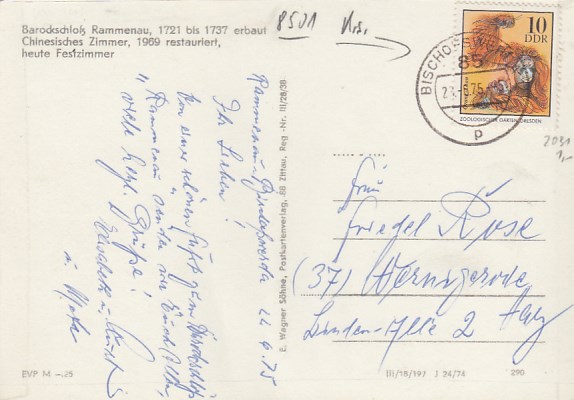 Barockschloß Rammenau, 1721 bis 1737 erbaut
Chinesisches Zimmer, 1969 restauriert,
heute Festzimmer
8501
10
DDR
ZOOLOGISCHER GARTEN DRESDEN
BISCHOFSWERDA
85
23.-6.75
p
2031
1,-
Rammenau-Bischofswerda 22.6.75
Ihr Lieben!
Von einer schönen Fahrt zum Barockschloß
"Rammenau" senden wir Euch allen
viele herzl. Grüße!
u.
E. Wagner Söhne, Postkartenverlag, 88 Zittau, Reg.-Nr. III/28/38
Frau
Friedel Rose
(37) Wernigerode
Linden-Allee 2 Harz
EVP M -.25
III/18/197 J 24/74 290